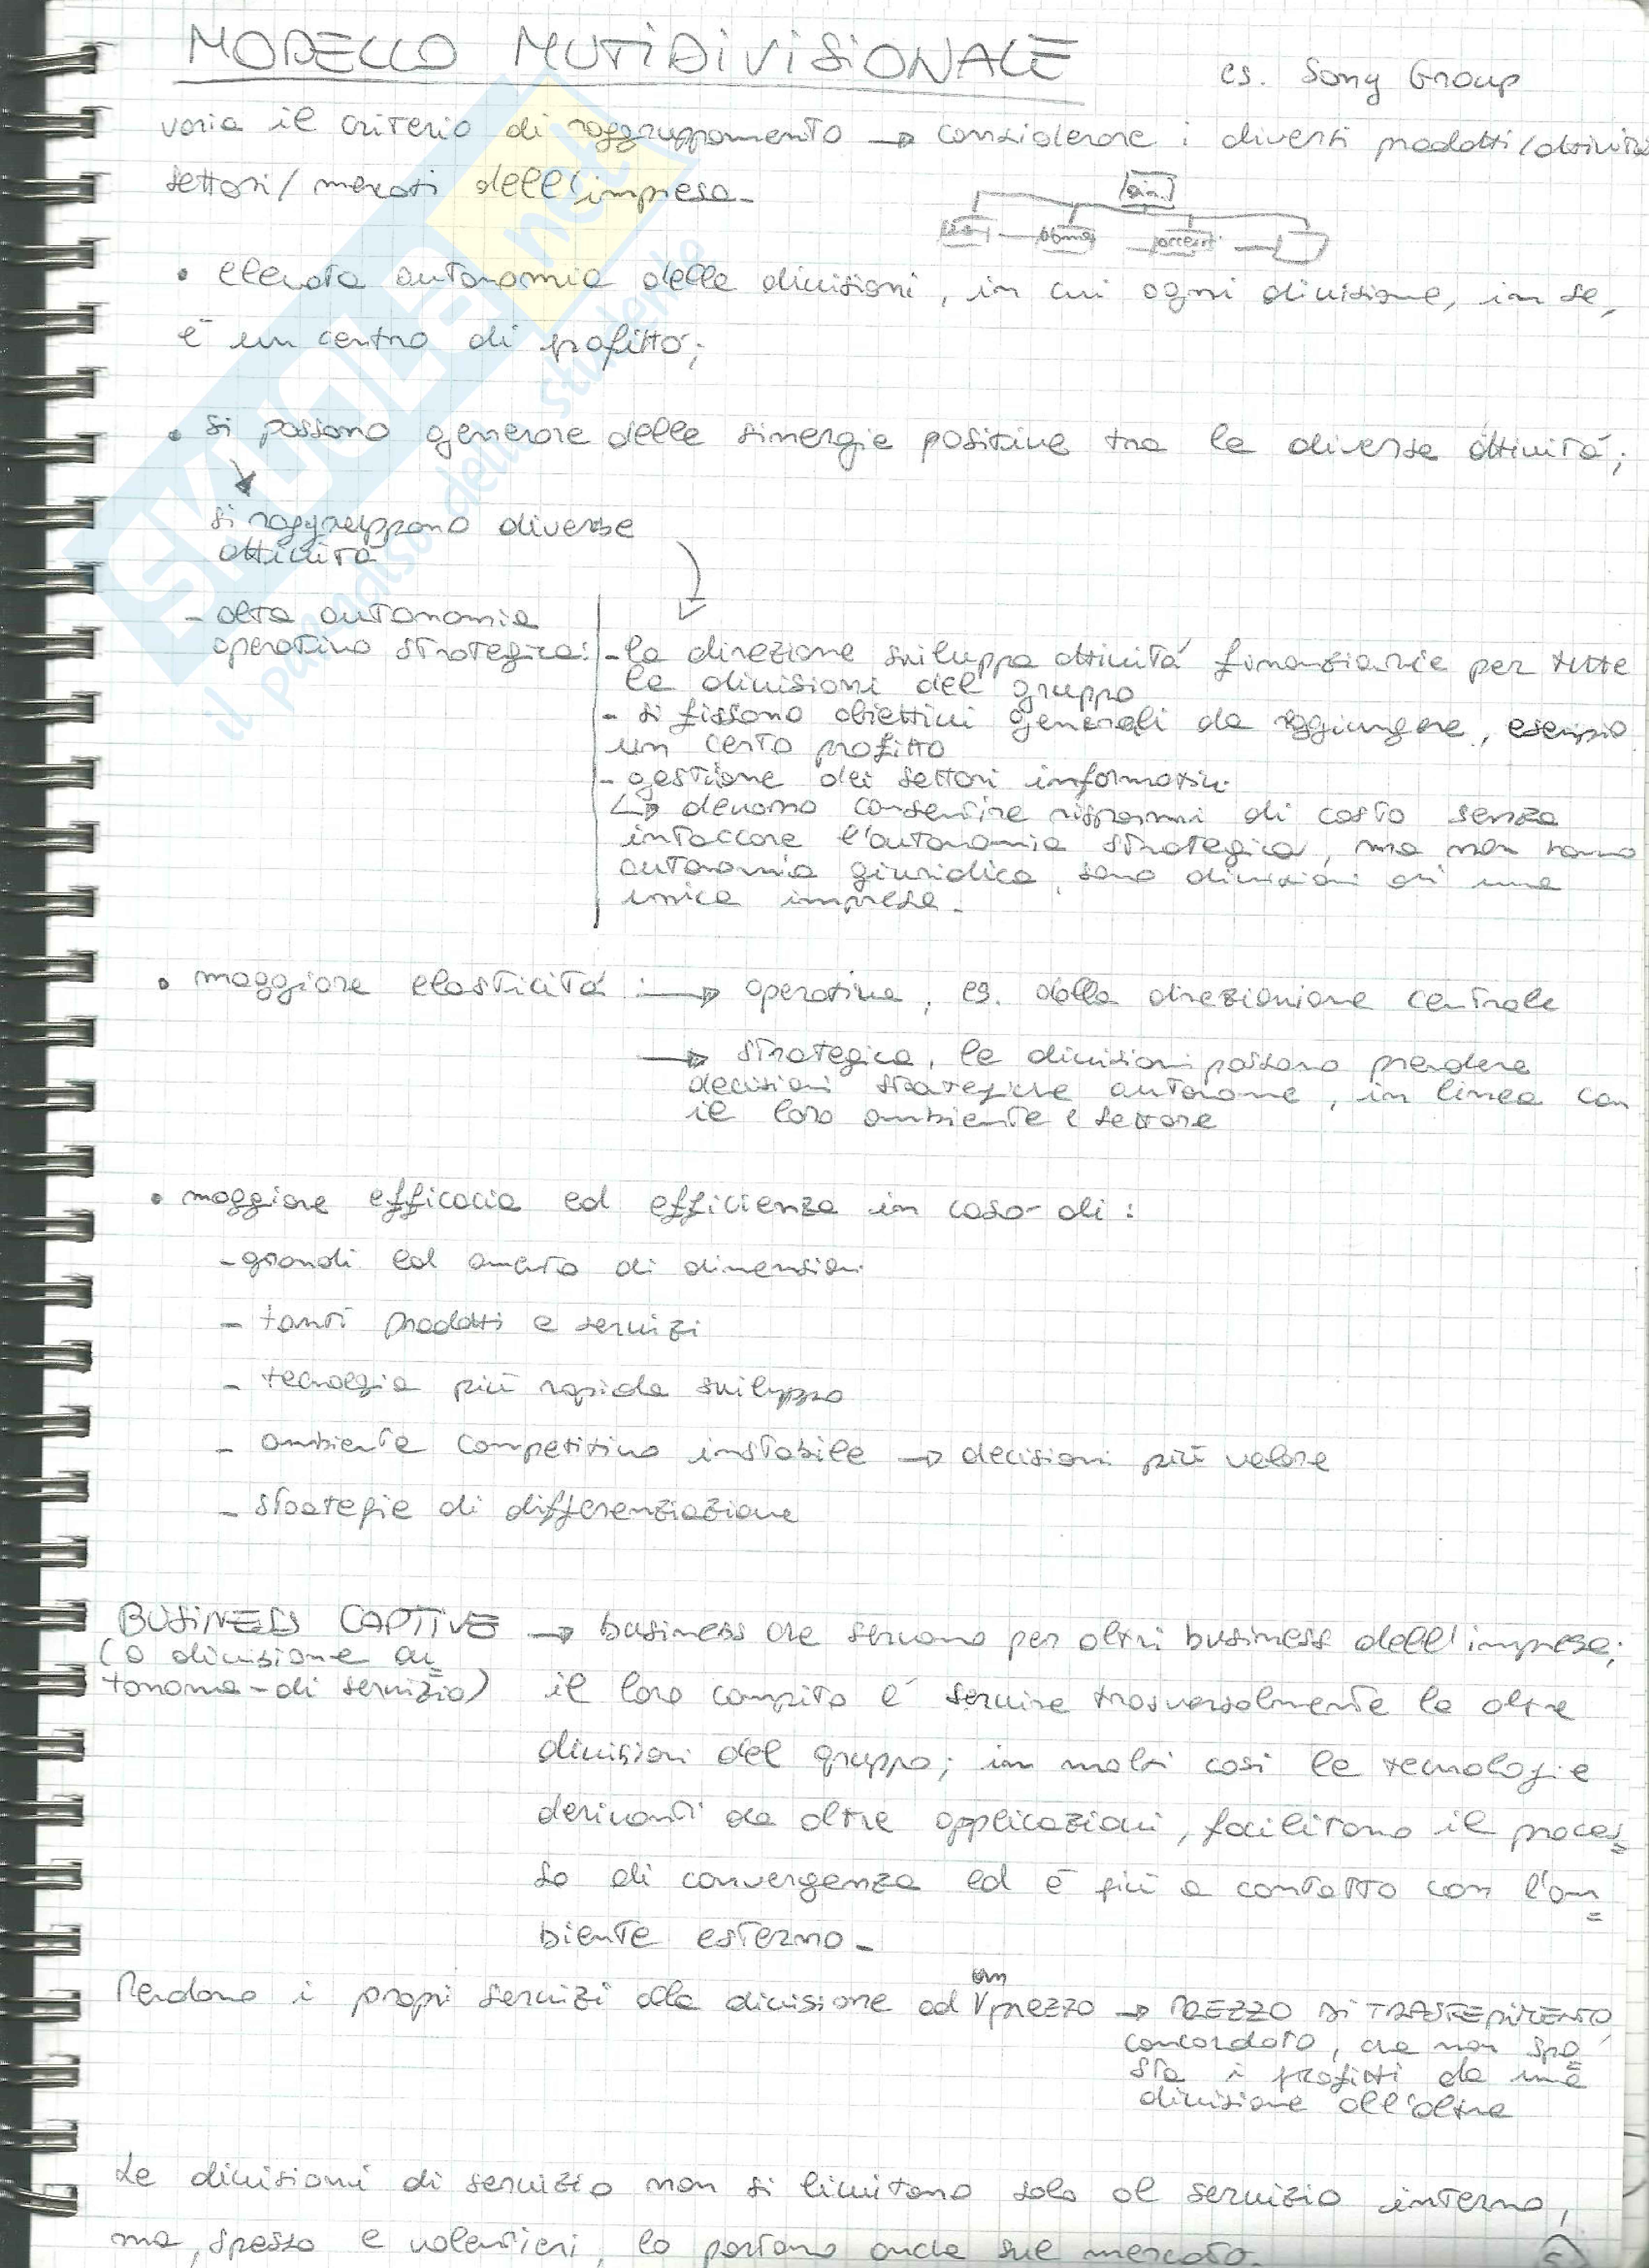 MODELLO MUTIDIVISIONALE
es. Sony Group
varia il criterio di raggruppamento → considerare i diversi prodotti/attività
settori/mercati dell'impresa-
• elevata autonomia delle divisioni, in cui ogni divisione, in se,
è un centro di profitto;
• si possono generare delle sinergie positive tra le diverse attività;
si raggruppano diverse
attività
- alta autonomia
operativo strategica:
- la direzione sviluppa attività finanziarie per tutte
le divisioni del gruppo
- si fissano obiettivi generali da raggiungere, esempio
un certo profitto
- gestione dei settori informativi
↳ devono consentire risparmi di costo senza
intaccare l'autonomia strategica, ma non hanno
autonomia giuridica, sono divisioni di una
unica impresa-
• maggiore elasticità: → operativa, es. dalla direzionione centrale
→ strategica, le divisioni possono prendere
decisioni strategiche autonome, in linea con
il loro ambiente e settore
• maggiore efficacia ed efficienza in caso di:
- grandi ed di dimensioni
- tanti prodotti e servizi
- tecnologia più rapida sviluppo
- ambiente competitivo instabile → decisioni più veloce
- strategie di differenziazione
BUSINESS CAPTIVE → business che servono per altri business dell'impresa;
(o divisione au=
tonoma-di servizio)
il loro compito è servire trasversalmente le altre
divisioni del gruppo; in molti casi le tecnologie
derivanti da altre applicazioni, facilitano il proces=
so di convergenza ed è più a contatto con l'am=
biente esterno-
Vendono i propri servizi alla divisione ad un prezzo → PREZZO DI TRASFERIMENTO,
concordato, che non spo=
sta i profitti da una
divisione all'altra
Le divisioni di servizio non si limitano solo al servizio interno,
ma, spesso e volentieri, lo portano anche sul mercato.
SKUOLA.net
il paradiso dello studente